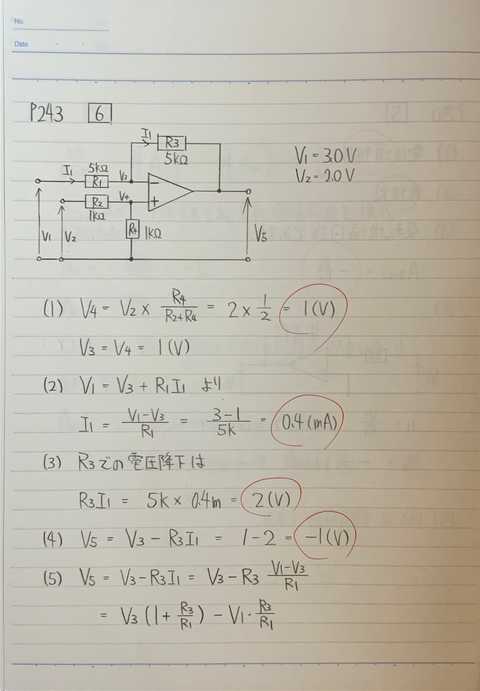 No.
Date
P243 6
I1 R3
5kΩ
V1 = 3.0V
V2 = 2.0V
I1 5kΩ
R1 V3 −
R2 V4 +
1kΩ
R4 1kΩ
V1 V2 V5
(1) V4 = V2 × R4/(R2+R4) = 2 × 1/2 = 1(V)
V3 = V4 = 1(V)
(2) V1 = V3 + R1I1 より
I1 = (V1−V3)/R1 = (3−1)/5k = 0.4(mA)
(3) R3での電圧降下は
R3I1 = 5k × 0.4m = 2(V)
(4) V5 = V3 − R3I1 = 1−2 = −1(V)
(5) V5 = V3−R3I1 = V3−R3 (V1−V3)/R1
= V3(1+R3/R1) − V1·R3/R1